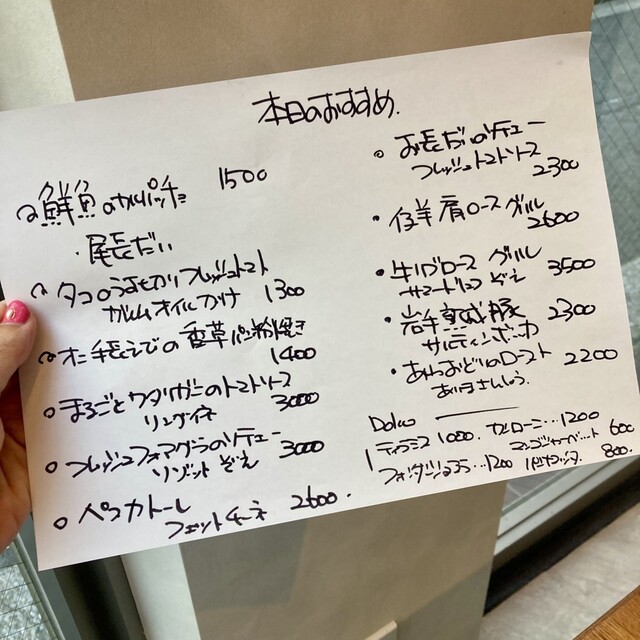 本日のおすすめ.
鮮魚のカルパッチョ 1500
・尾長だい
タコのうす切りフレッシュトマト
ガルムオイルかけ 1300
オニ手長えびの香草パン粉焼き
1400
まるごとワタリガニのトマトソース
リングイネ 3000
フレッシュフォアグラのソテー
リゾットぞえ 3000
ペスカトーレ
フェットチーネ 2600.
お長だいのソテー
フレッシュトマトソース
2300
仔羊肩ロースグリル
2600
牛リブロースグリル
サマートリュフぞえ 3500
岩手 豚 2300
サルティンボッカ
あいちおどりのロースト
ありまさんしょう. 2200
Dolce
ティラミス 1000. カッサータ…1200
フォンダンショコラ…1200
600
パンナコッタ 800.